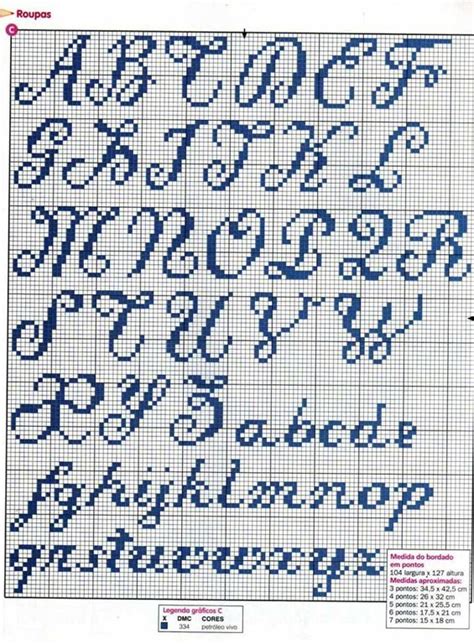 Roupas
C
A B C D E F
G H I J K L
M N O P Q R
S T U V W
X Y Z a b c d e
f g h i j k l m n o p
q r s t u v w x y z
Medida do bordado
em pontos
104 largura x 127 altura
Medidas aproximadas:
3 pontos: 34,5 x 42,5 cm
4 pontos: 26 x 32 cm
5 pontos: 21 x 25,5 cm
6 pontos: 17,5 x 21 cm
7 pontos: 15 x 18 cm
Legenda gráficos C
X DMC CORES
334 petróleo vivo